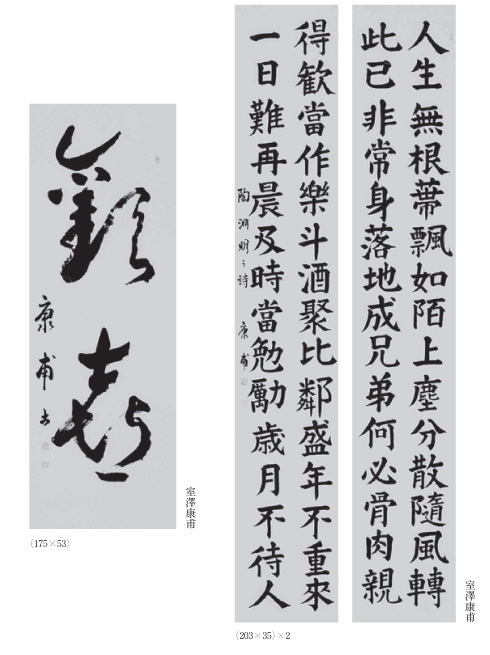 人生無根蔕飄如陌上塵分散隨風轉
此已非常身落地成兄弟何必骨肉親
室澤康甫
得歓當作樂斗酒聚比鄰盛年不重來
一日難再晨及時當勉勵歳月不待人
陶淵明之詩 康甫
(203×35)×2
歓喜
康甫書
室澤康甫
(175×53)